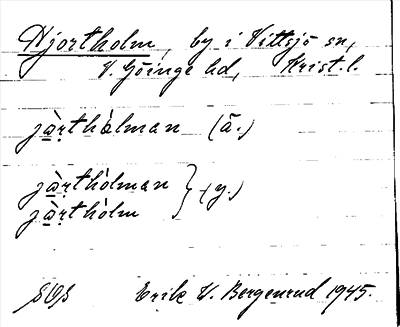 Hjortholm, by i Vittsjö sn,
V. Göinge hd, Krist. l.
jàṛthålman (ä.)
jàṛthòlman
jàṛthòlm } (y.)
SOS Erik V. Bergenrud 1945.